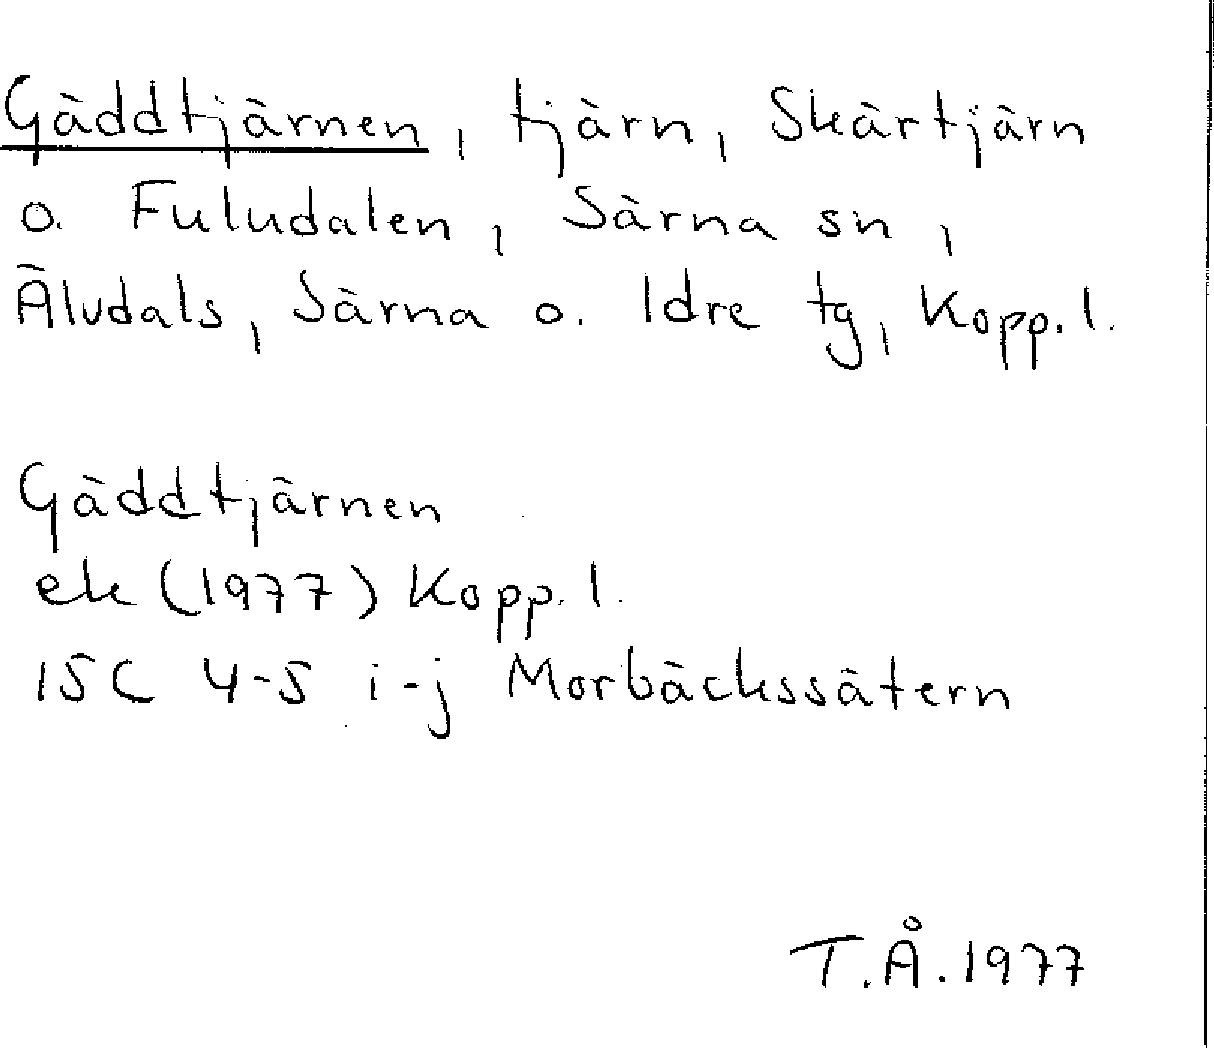 Gäddtjärnen, tjärn, Skärtjärn
o. Fuludalen, Särna sn,
Älvdals, Särna o. Idre tg, Kopp. l.
Gäddtjärnen
ek (1977) Kopp. l.
15C 4-5 i-j Morbäckssätern
T.Å. 1977